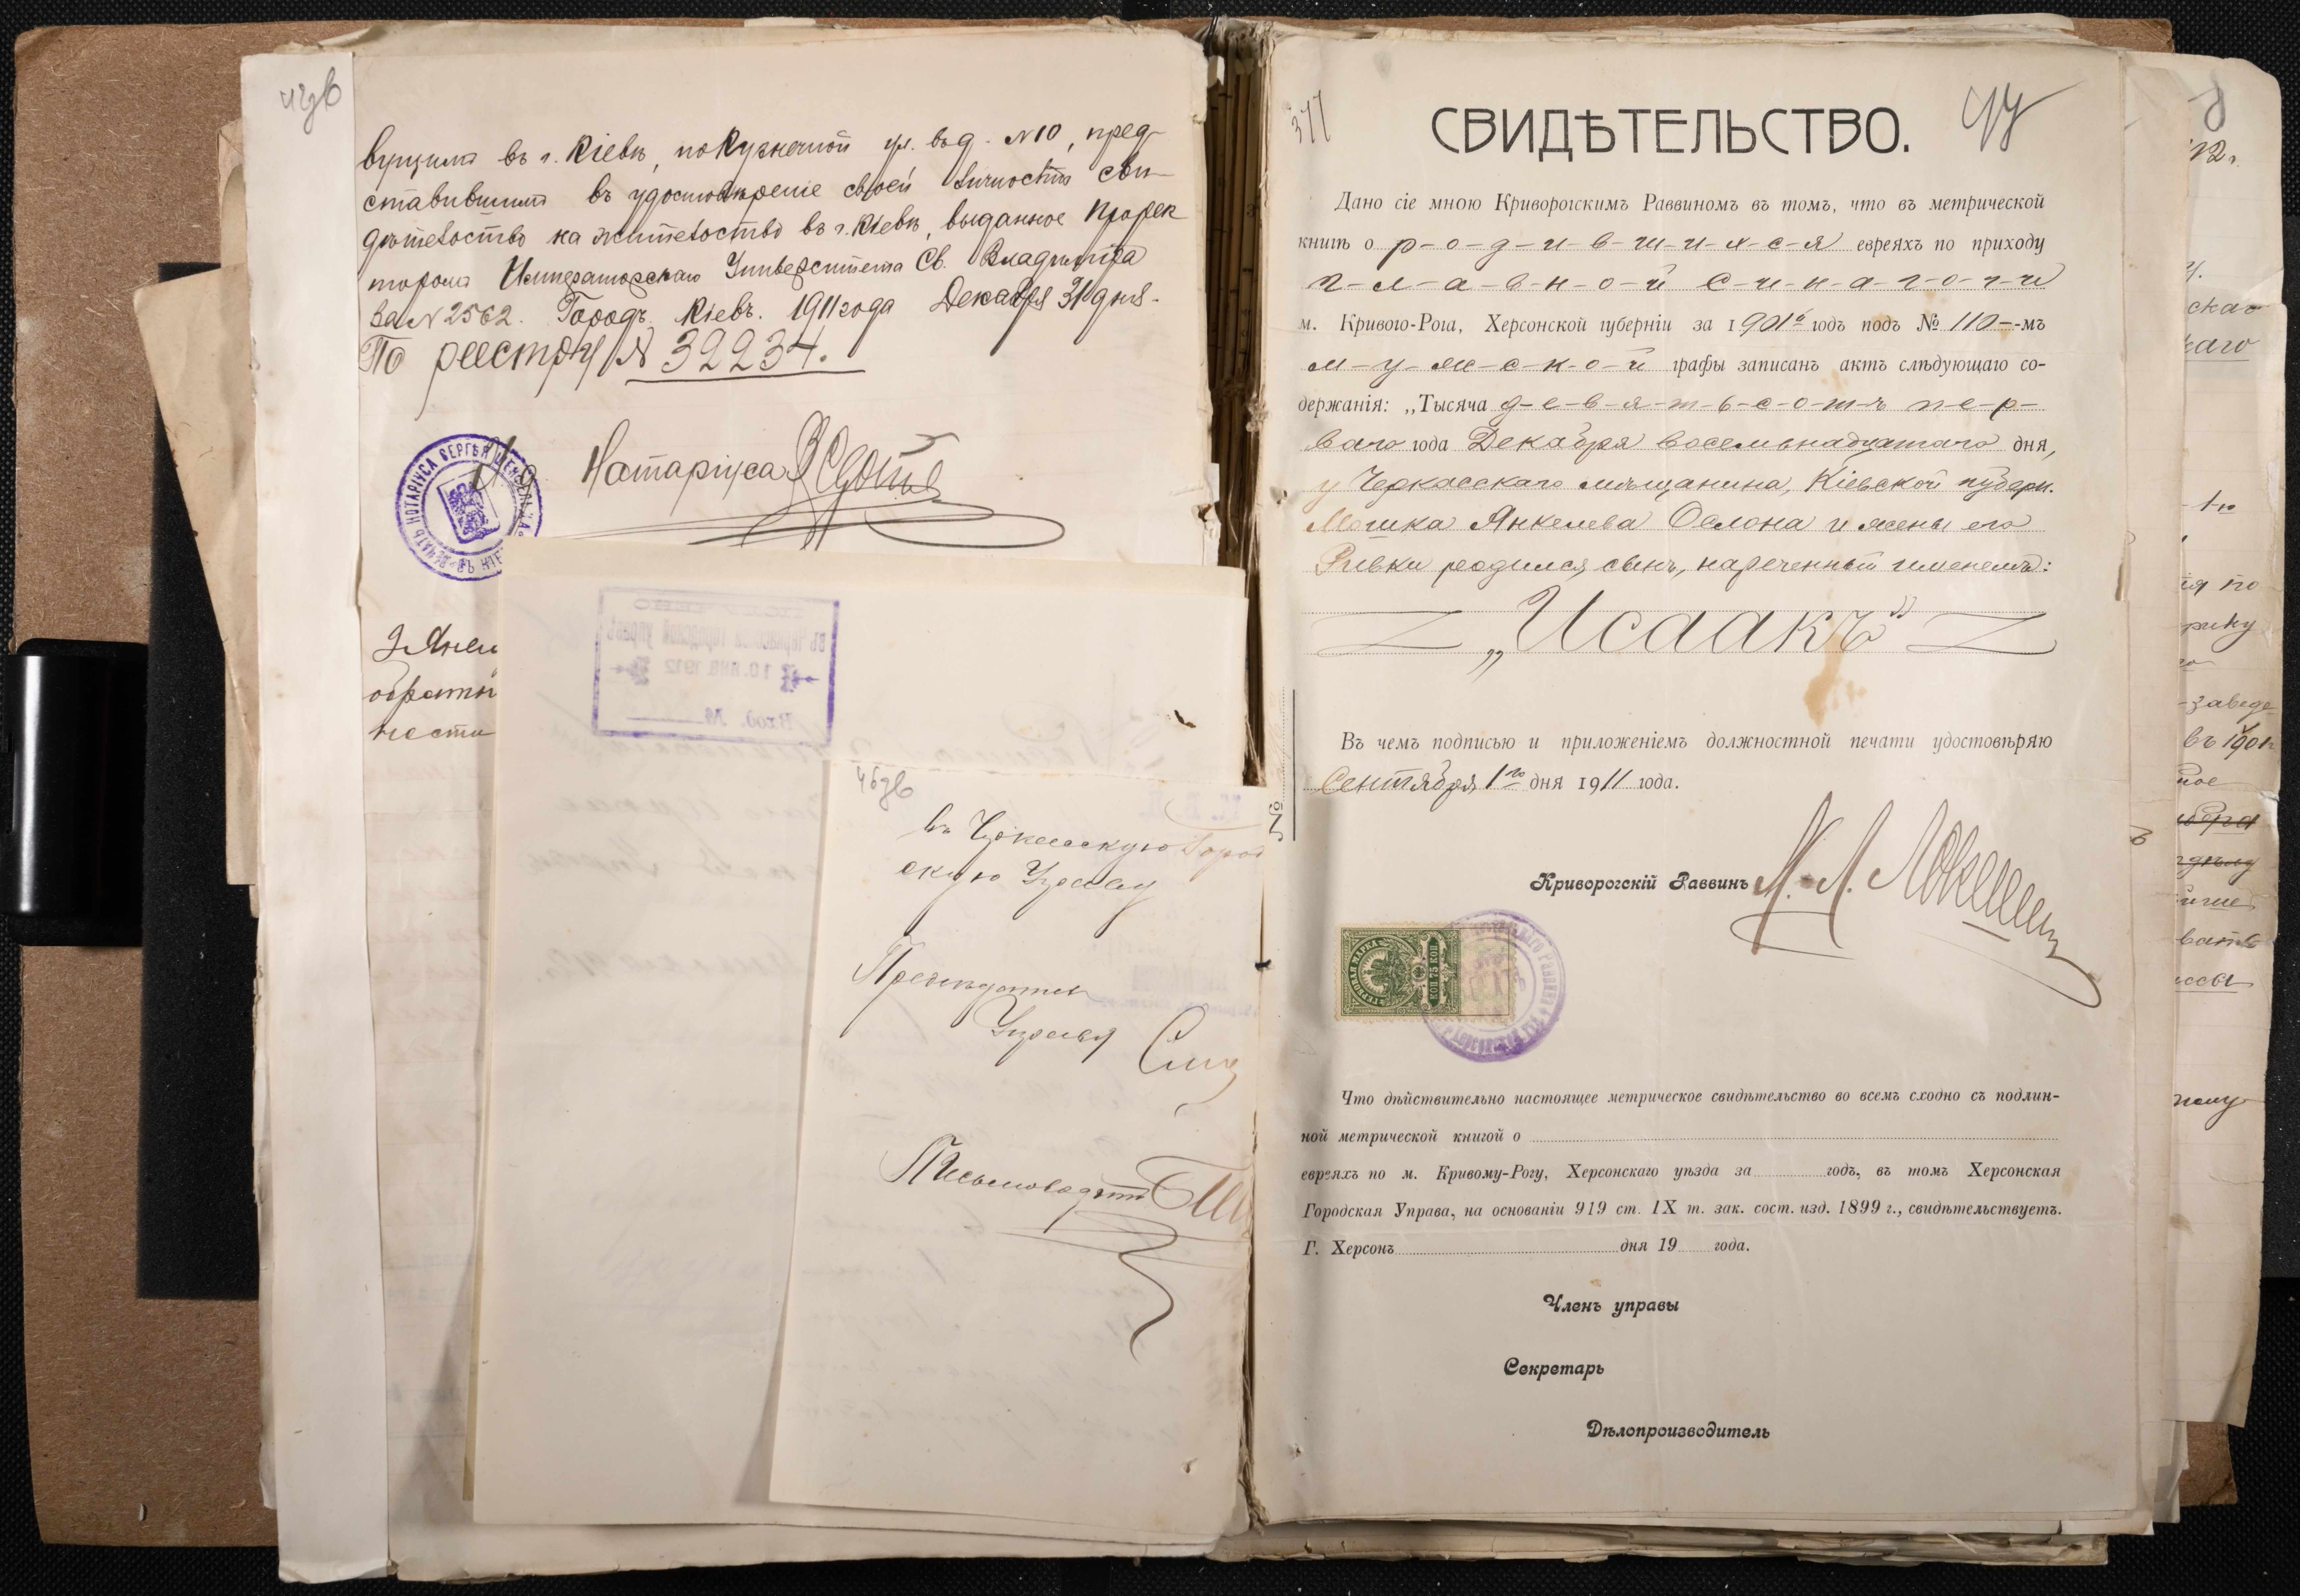 вущимъ въ г. Кіевѣ, по Кузнечной ул. въ д. №10, пред-
ставившимъ въ удостовѣреніе своей личности сви-
дѣтельство на жительство въ г. Кіевѣ, выданное Прорек
торомъ Императорскаго Университета Св. Владиміра
за №2562. Городъ Кіевъ. 1911 года Декабря 31 дня.
По реестру № 32234.
Нотаріуса
ПЕЧАТЬ НОТАРІУСА СЕРГѢЯ
обратн
въ Черкасской городской управѣ
10. ЯНВ 1912
Вход. №
въ Черкасскую Город
скую Управу
Предсѣдатель
Управы
Письмоводитель
377
СВИДѢТЕЛЬСТВО.
Дано сіе мною Криворогскимъ Раввиномъ въ томъ, что въ метрической
книгѣ о р-о-д-и-в-ш-и-х-с-я евреяхъ по приходу
г-л-а-в-н-о-й с-и-н-а-г-о-г-и
м. Кривого-Рога, Херсонской губерніи за 1901й годъ подъ № 110--мъ
м-у-ж-с-к-о-й графы записанъ актъ слѣдующаго со-
держанія: „Тысяча д-е-в-я-т-ь-с-о-т-ъ п-е-р-
ваго года Декабря восемьнадцатаго дня,
у Черкасскаго мѣщанина, Кіевской губерн.
Мошка Янкелева Ослона и жены его
Ривки родился сынъ, нареченный именемъ:
„Исаакъ"
Въ чемъ подписью и приложеніемъ должностной печати удостовѣряю
Сентября 1го дня 1911 года.
№
Криворогскій Раввинъ
ГЕРБОВАЯ МАРКА
75 КОП
Что дѣйствительно настоящее метрическое свидѣтельство во всемъ сходно съ подлин-
ной метрической книгой о
евреяхъ по м. Кривому-Рогу, Херсонскаго уѣзда за годъ, въ томъ Херсонская
Городская Управа, на основаніи 919 ст. IX т. зак. сост. изд. 1899 г., свидѣтельствуетъ.
Г. Херсонъ дня 19 года.
Членъ управы
Секретарь
Дѣлопроизводитель